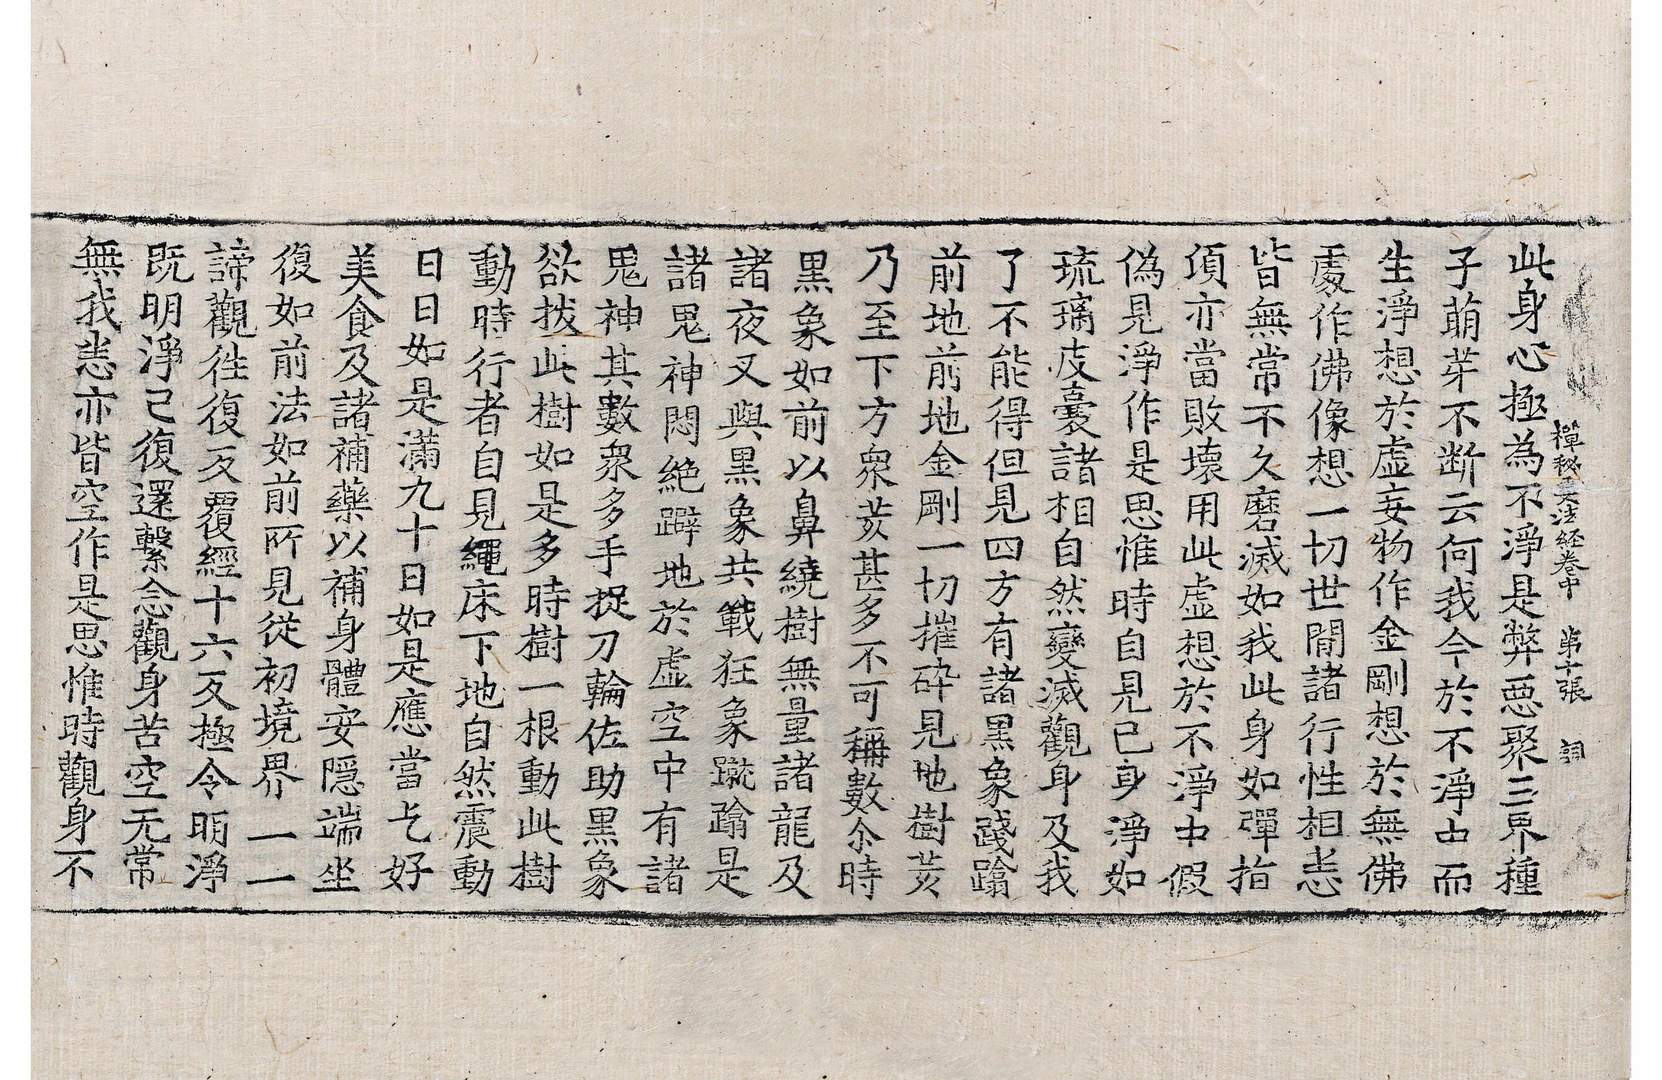 禪秘要法經卷中 第十張 詞
此身心極為不淨是弊惡聚三界種
子萌芽不断云何我今於不淨中而
生淨想於虛妄物作金剛想於無佛
處作佛像想一切世間諸行性相悉
皆無常不久磨滅如我此身如彈指
頃亦當敗壞用此虛想於不淨中假
偽見淨作是思惟時自見己身淨如
琉璃皮囊諸相自然變滅觀身及我
了不能得但見四方有諸黑象踐蹹
前地前地金剛一切摧碎見地樹荄
乃至下方衆荄甚多不可稱數尒時
黑象如前以鼻繞樹無量諸龍及
諸夜叉與黑象共戰狂象蹴蹹是
諸鬼神悶絶躃地於虛空中有諸
鬼神其數衆多手捉刀輪佐助黑象
欲拔此樹如是多時樹一根動此樹
動時行者自見繩床下地自然震動
日日如是滿九十日如是應當乞好
美食及諸補藥以補身體安隱端坐
復如前法如前所見從初境界一一
諦觀徃復反覆經十六反極令明淨
既明淨已復還繫念觀身苦空无常
無我悉亦皆空作是思惟時觀身不